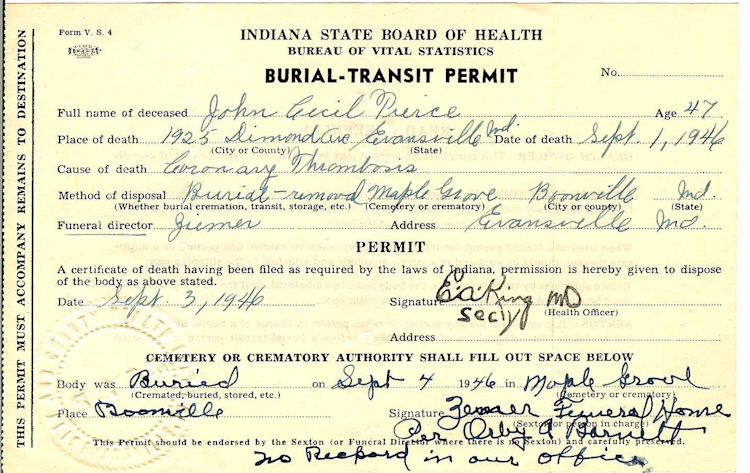 Form V. S. 4
INDIANA STATE BOARD OF HEALTH
BUREAU OF VITAL STATISTICS
BURIAL-TRANSIT PERMIT
No.
Full name of deceased John Cecil Pierce Age 47
Place of death 1925 Dimond Ave Evansville Ind. Date of death Sept. 1, 1946
(City or County) (State)
Cause of death Coronary Thrombosis
Method of disposal Burial-removal Maple Grove Boonville Ind.
(Whether burial cremation, transit, storage, etc.) (Cemetery or crematory) (City or county) (State)
Funeral director Ziemer Address Evansville Ind.
PERMIT
A certificate of death having been filed as required by the laws of Indiana, permission is hereby given to dispose
of the body as above stated.
Date Sept. 3, 1946 Signature E.a. King MD
Secly (Health Officer)
Address
CEMETERY OR CREMATORY AUTHORITY SHALL FILL OUT SPACE BELOW
Body was Buried on Sept 4 1946 in Maple Grove
(Cremated, buried, stored, etc.) (Cemetery or crematory)
Place Boonville Signature Zemer Funeral Home
(Sexton or person in charge)
Per Orby
This Permit should be endorsed by the Sexton (or Funeral Director where there is no Sexton) and carefully preserved.
no Reckord in our office
THIS PERMIT MUST ACCOMPANY REMAINS TO DESTINATION